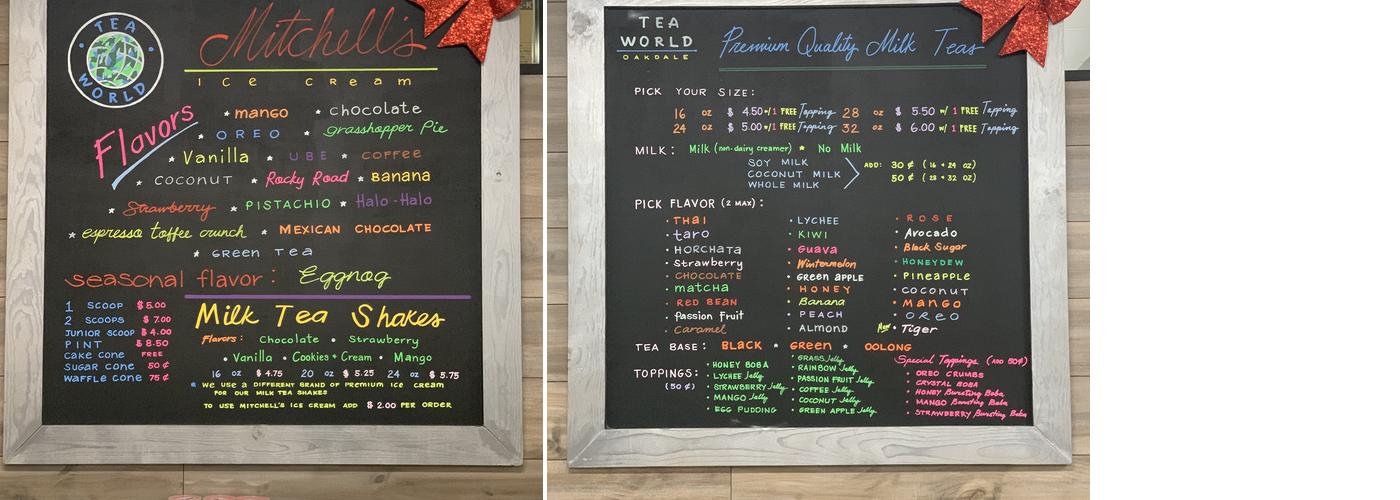 TEA WORLD
Mitchell's
ICE CREAM
Flavors
* mango * chocolate
* OREO * grasshopper Pie
* Vanilla * UBE * COFFEE
* COCONUT * Rocky Road * BANANA
* Strawberry * PISTACHIO * Halo-Halo
* espresso toffee crunch * MEXICAN CHOCOLATE
* GREEN TEA
seasonal flavor: Eggnog
1 SCOOP $5.00
2 SCOOPS $7.00
JUNIOR SCOOP $4.00
PINT $8.50
CAKE CONE FREE
SUGAR CONE 50¢
WAFFLE CONE 75¢
Milk Tea Shakes
Flavors: Chocolate • Strawberry
• Vanilla • Cookies + Cream • Mango
16 oz $4.75 20 oz $5.25 24 oz $5.75
* WE USE A DIFFERENT BRAND OF PREMIUM ICE CREAM
FOR OUR MILK TEA SHAKES
TO USE MITCHELL'S ICE CREAM ADD $2.00 PER ORDER
TEA WORLD
OAKDALE
Premium Quality Milk Teas
PICK YOUR SIZE:
16 oz $4.50 w/1 FREE Topping 28 oz $5.50 w/1 FREE Topping
24 oz $5.00 w/1 FREE Topping 32 oz $6.00 w/1 FREE Topping
MILK: Milk (non-dairy creamer) * No Milk
SOY MILK
COCONUT MILK
WHOLE MILK
ADD: 30¢ (16 + 24 oz)
50¢ (28 + 32 oz)
PICK FLAVOR (2 MAX):
• THAI
• taro
• HORCHATA
• Strawberry
• CHOCOLATE
• matcha
• RED BEAN
• Passion Fruit
• Caramel
• LYCHEE
• KIWI
• Guava
• Wintermelon
• Green APPLE
• HONEY
• Banana
• PEACH
• ALMOND
• ROSE
• Avocado
• Black Sugar
• HONEYDEW
• PINEAPPLE
• COCONUT
• MANGO
• OREO
New • Tiger
TEA BASE: BLACK * Green * OOLONG
TOPPINGS:
(50¢)
• HONEY BOBA
• LYCHEE Jelly
• STRAWBERRY Jelly
• MANGO Jelly
• EGG PUDDING
• GRASS Jelly
• RAINBOW Jelly
• PASSION FRUIT Jelly
• COFFEE Jelly
• COCONUT Jelly
• GREEN APPLE Jelly
Special Toppings (ADD 50¢)
• OREO CRUMBS
• CRYSTAL BOBA
• HONEY Bursting Boba
• MANGO Bursting Boba
• STRAWBERRY Bursting Boba